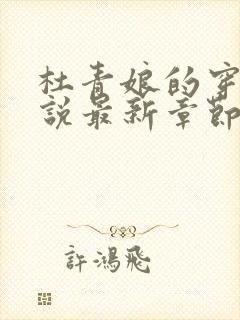 杜青娘的穿
說最新章節
許鴻飛